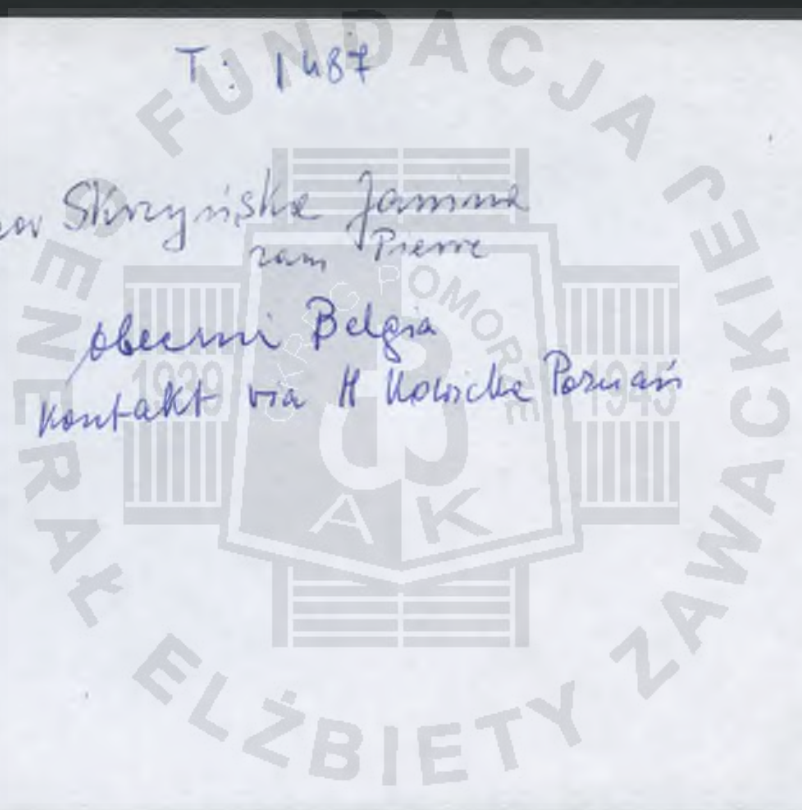 T: 1487
Skrzyńska Janina
zam Pierre
obecnie Belgia
Kontakt via H Kolicka Poznań
FUNDACJA GENERAŁ ELŻBIETY ZAWACKIEJ
OKRĘG POMORZE
1939 1945
AK